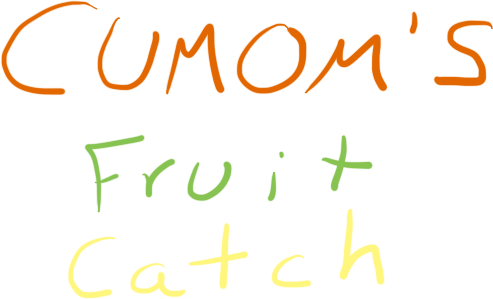 CUMOM'S
Fruit
Catch